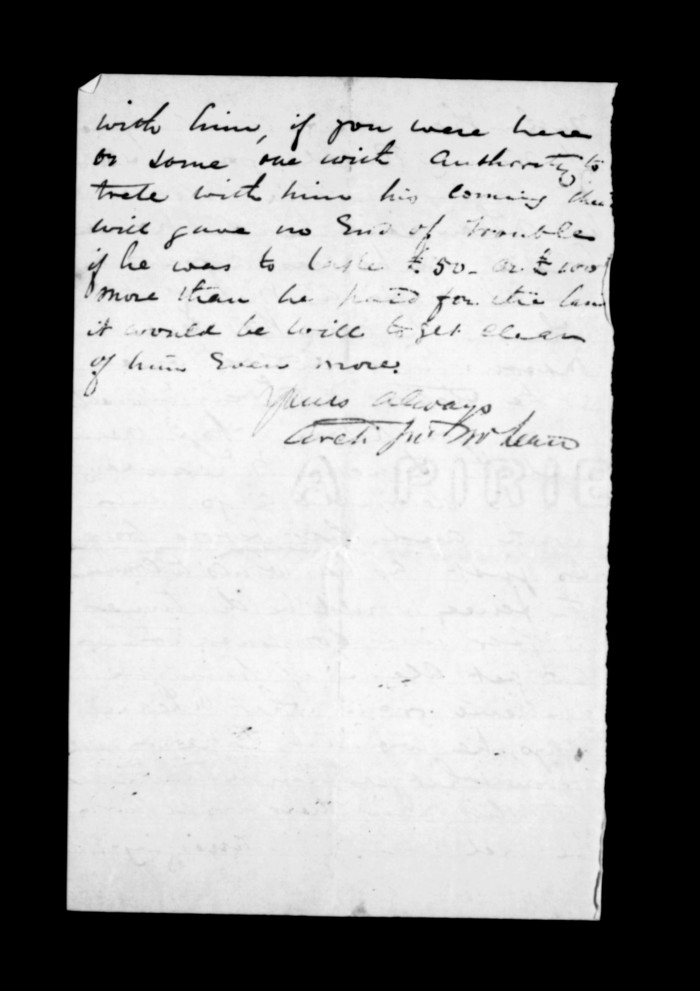 with him, if you were here
or some one with Authority to
trete with him his coming
will gave no End of trouble
if he was to £50 - or £100
more than he paid for the land
it would be will to get clear
of him Even more.
Yours always
Archd Jno McLean